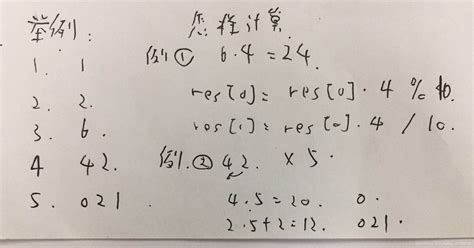 举例:
1. 1
2. 2.
3. 6.
4 42.
5. 021
怎样计算.
例① 6.4=24.
res[0]= res[0].4 % 10.
res[1]= res[0].4 / 10.
例.② 42. × 5.
4.5=20. 0.
2.5+2=12. 021.